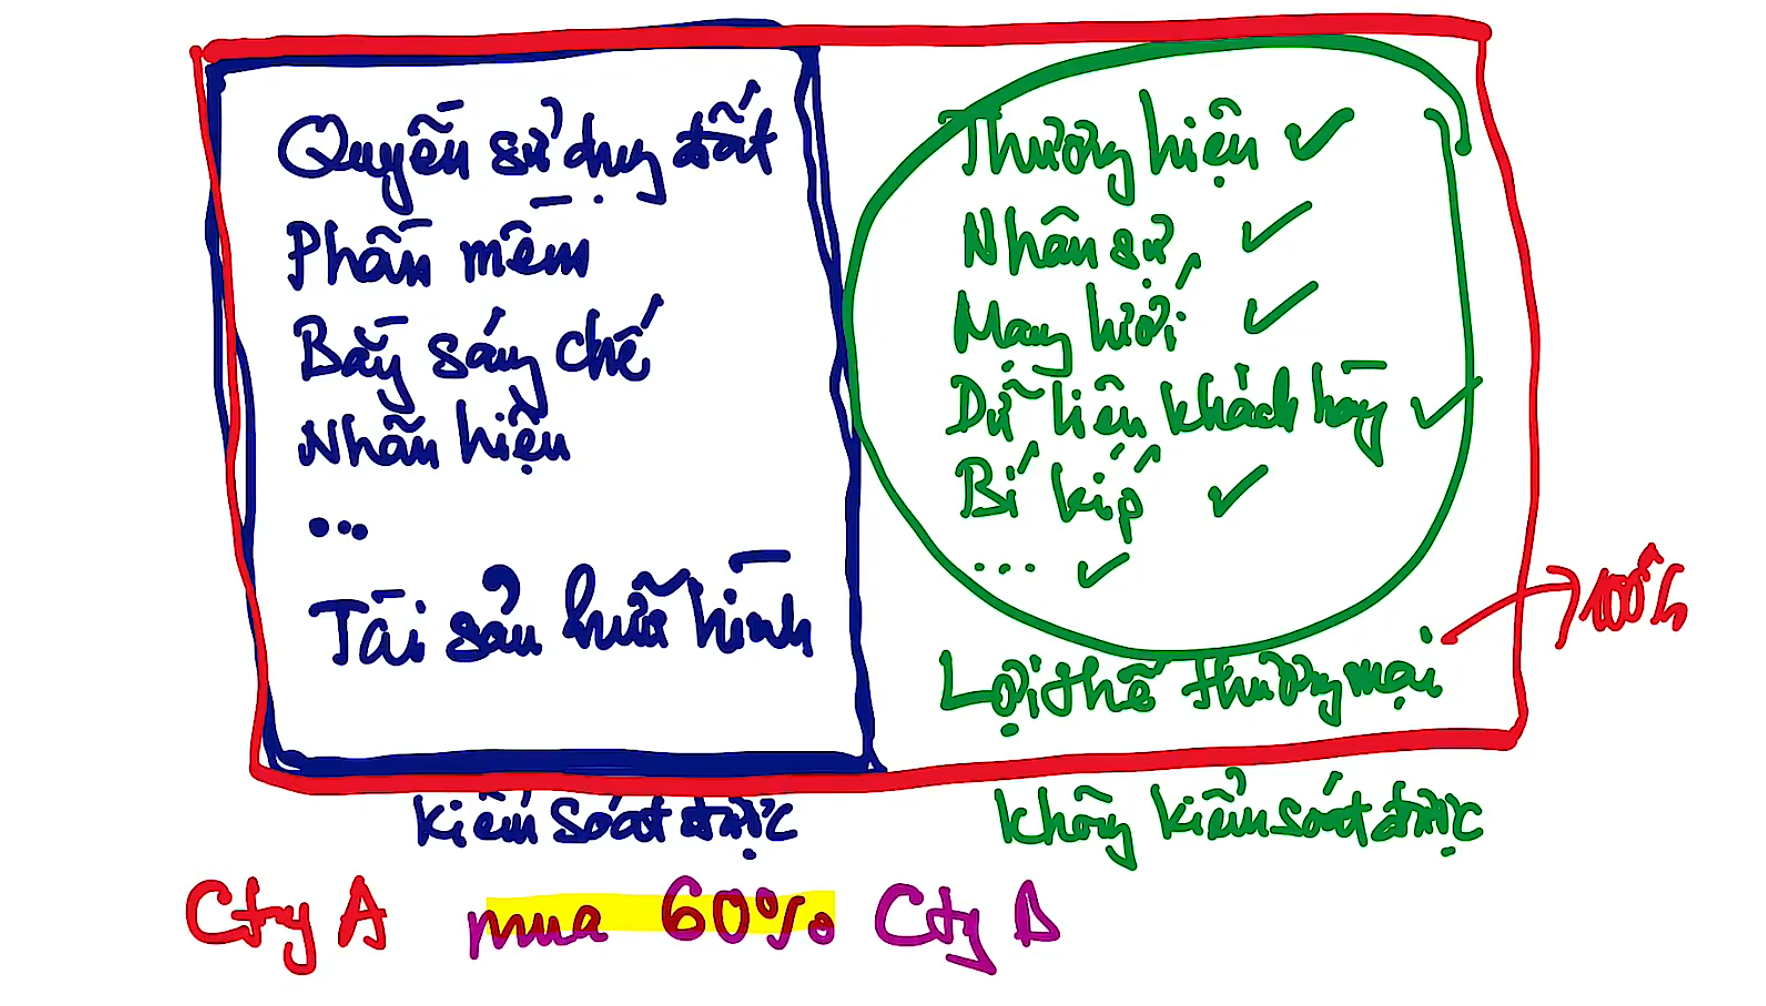 Quyền sử dụng đất
Phần mềm
Bằng sáng chế
Nhãn hiệu
...
Tài sản hữu hình
Kiểm soát được
Thương hiệu ✓
Nhân sự ✓
Mạng lưới ✓
Dữ liệu khách hàng ✓
Bí kíp ✓
... ✓
Lợi thế thương mại
100%
Không kiểm soát được
Cty A mua 60% Cty B